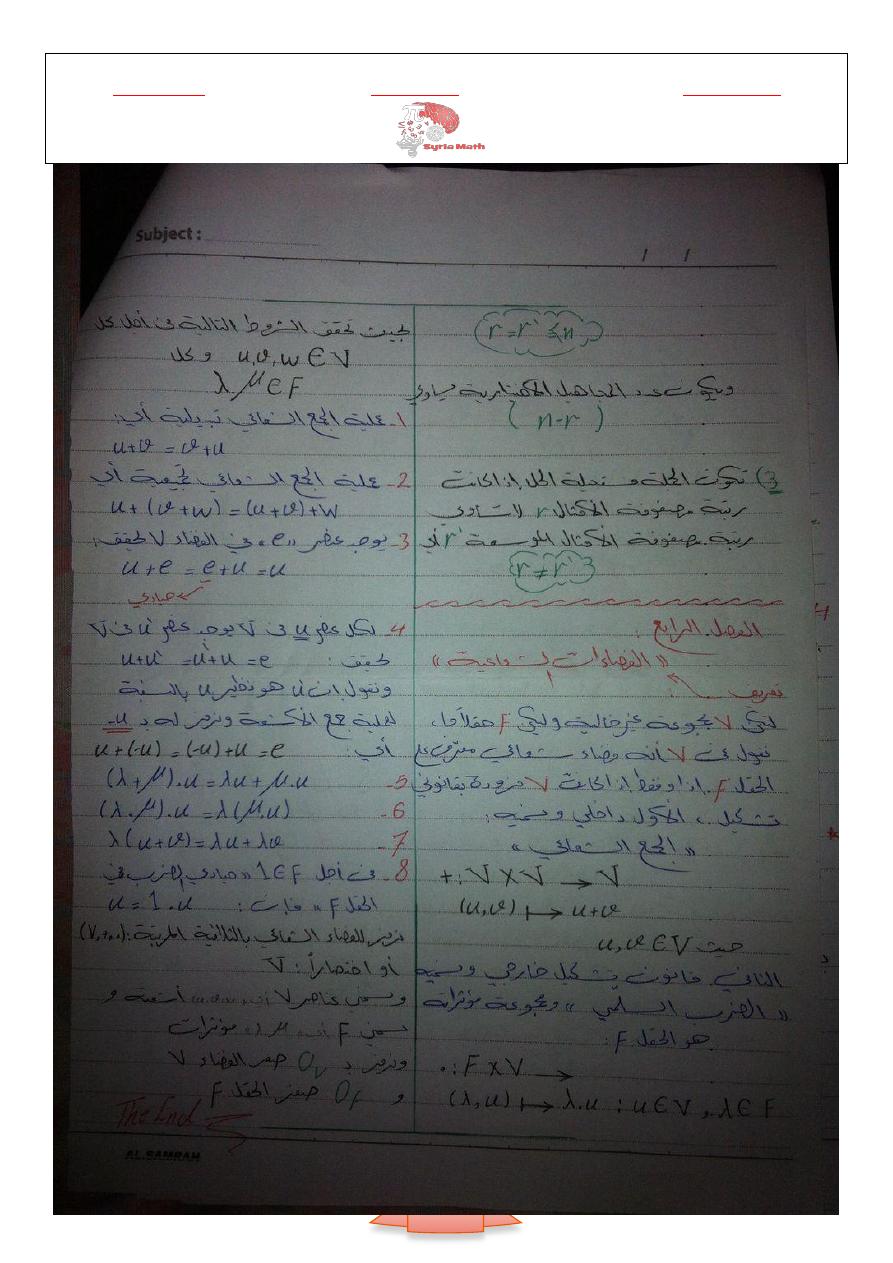 Syria Math
Subject :
/ /
r = r` ≤ n
ويكون عدد المجاهيل الاختيارية مساوي
( n-r )
3) تكون الجملة مستحيلة الحل إذا كانت
رتبة مصفوفة الأمثال r لا تساوي
رتبة مصفوفة الأمثال الموسعة r` أي
r ≠ r`
الفصل الرابع :
« الفضاءات الشعاعية »
تعريف :
لتكن V مجموعة غير خالية وليكن F حقلاً ما،
نقول عن V أنه فضاء شعاعي معرف على
الحقل F إذا وفقط إذا كانت V مزودة بقانوني
تشكيل ، الأول داخلي ونسميه :
« الجمع الشعاعي »
+ : V × V → V
(u,v) ↦ u+v
حيث u,v ∈ V
الثاني قانون تشكيل خارجي ونسميه
« الضرب السلمي » ومجموعة مؤثراته
هو الحقل F :
• : F × V →
(λ,u) ↦ λ.u : u ∈ V , λ ∈ F
بحيث تحقق الشروط التالية من أجل كل
u,v,w ∈ V وكل
λ, μ ∈ F
1- عملية الجمع الشعاعي تبديلية أي :
u+v = v+u
2- عملية الجمع الشعاعي تجميعية أي
u + (v+w) = (u+v)+w
3- يوجد عنصر «e» في الفضاء V يحقق :
u+e = e+u = u
حيادي
4- لكل عنصر u في V يوجد عنصر u` في V
يحقق : u+u` = u`+u = e
ونقول إن u` هو نظير u بالنسبة
لعملية جمع الأشعة ونرمز له بـ -u
أي : u+(-u) = (-u)+u = e
5- (λ+μ).u = λu + μ.u
6- (λ.μ).u = λ(μ.u)
7- λ(u+v) = λu+λv
8- من أجل 1 ∈ F « حيادي الضرب في
الحقل F » فإن : u = 1.u
نرمز للفضاء الشعاعي بالثلاثية المرتبة : (V,+,.)
أو اختصاراً : V
ونسمي عناصر V أشعة و
نسمي F مؤثرات
ونرمز بـ 0V صفر الفضاء V
و 0F صفر الحقل F
The End
AL SAMRAH